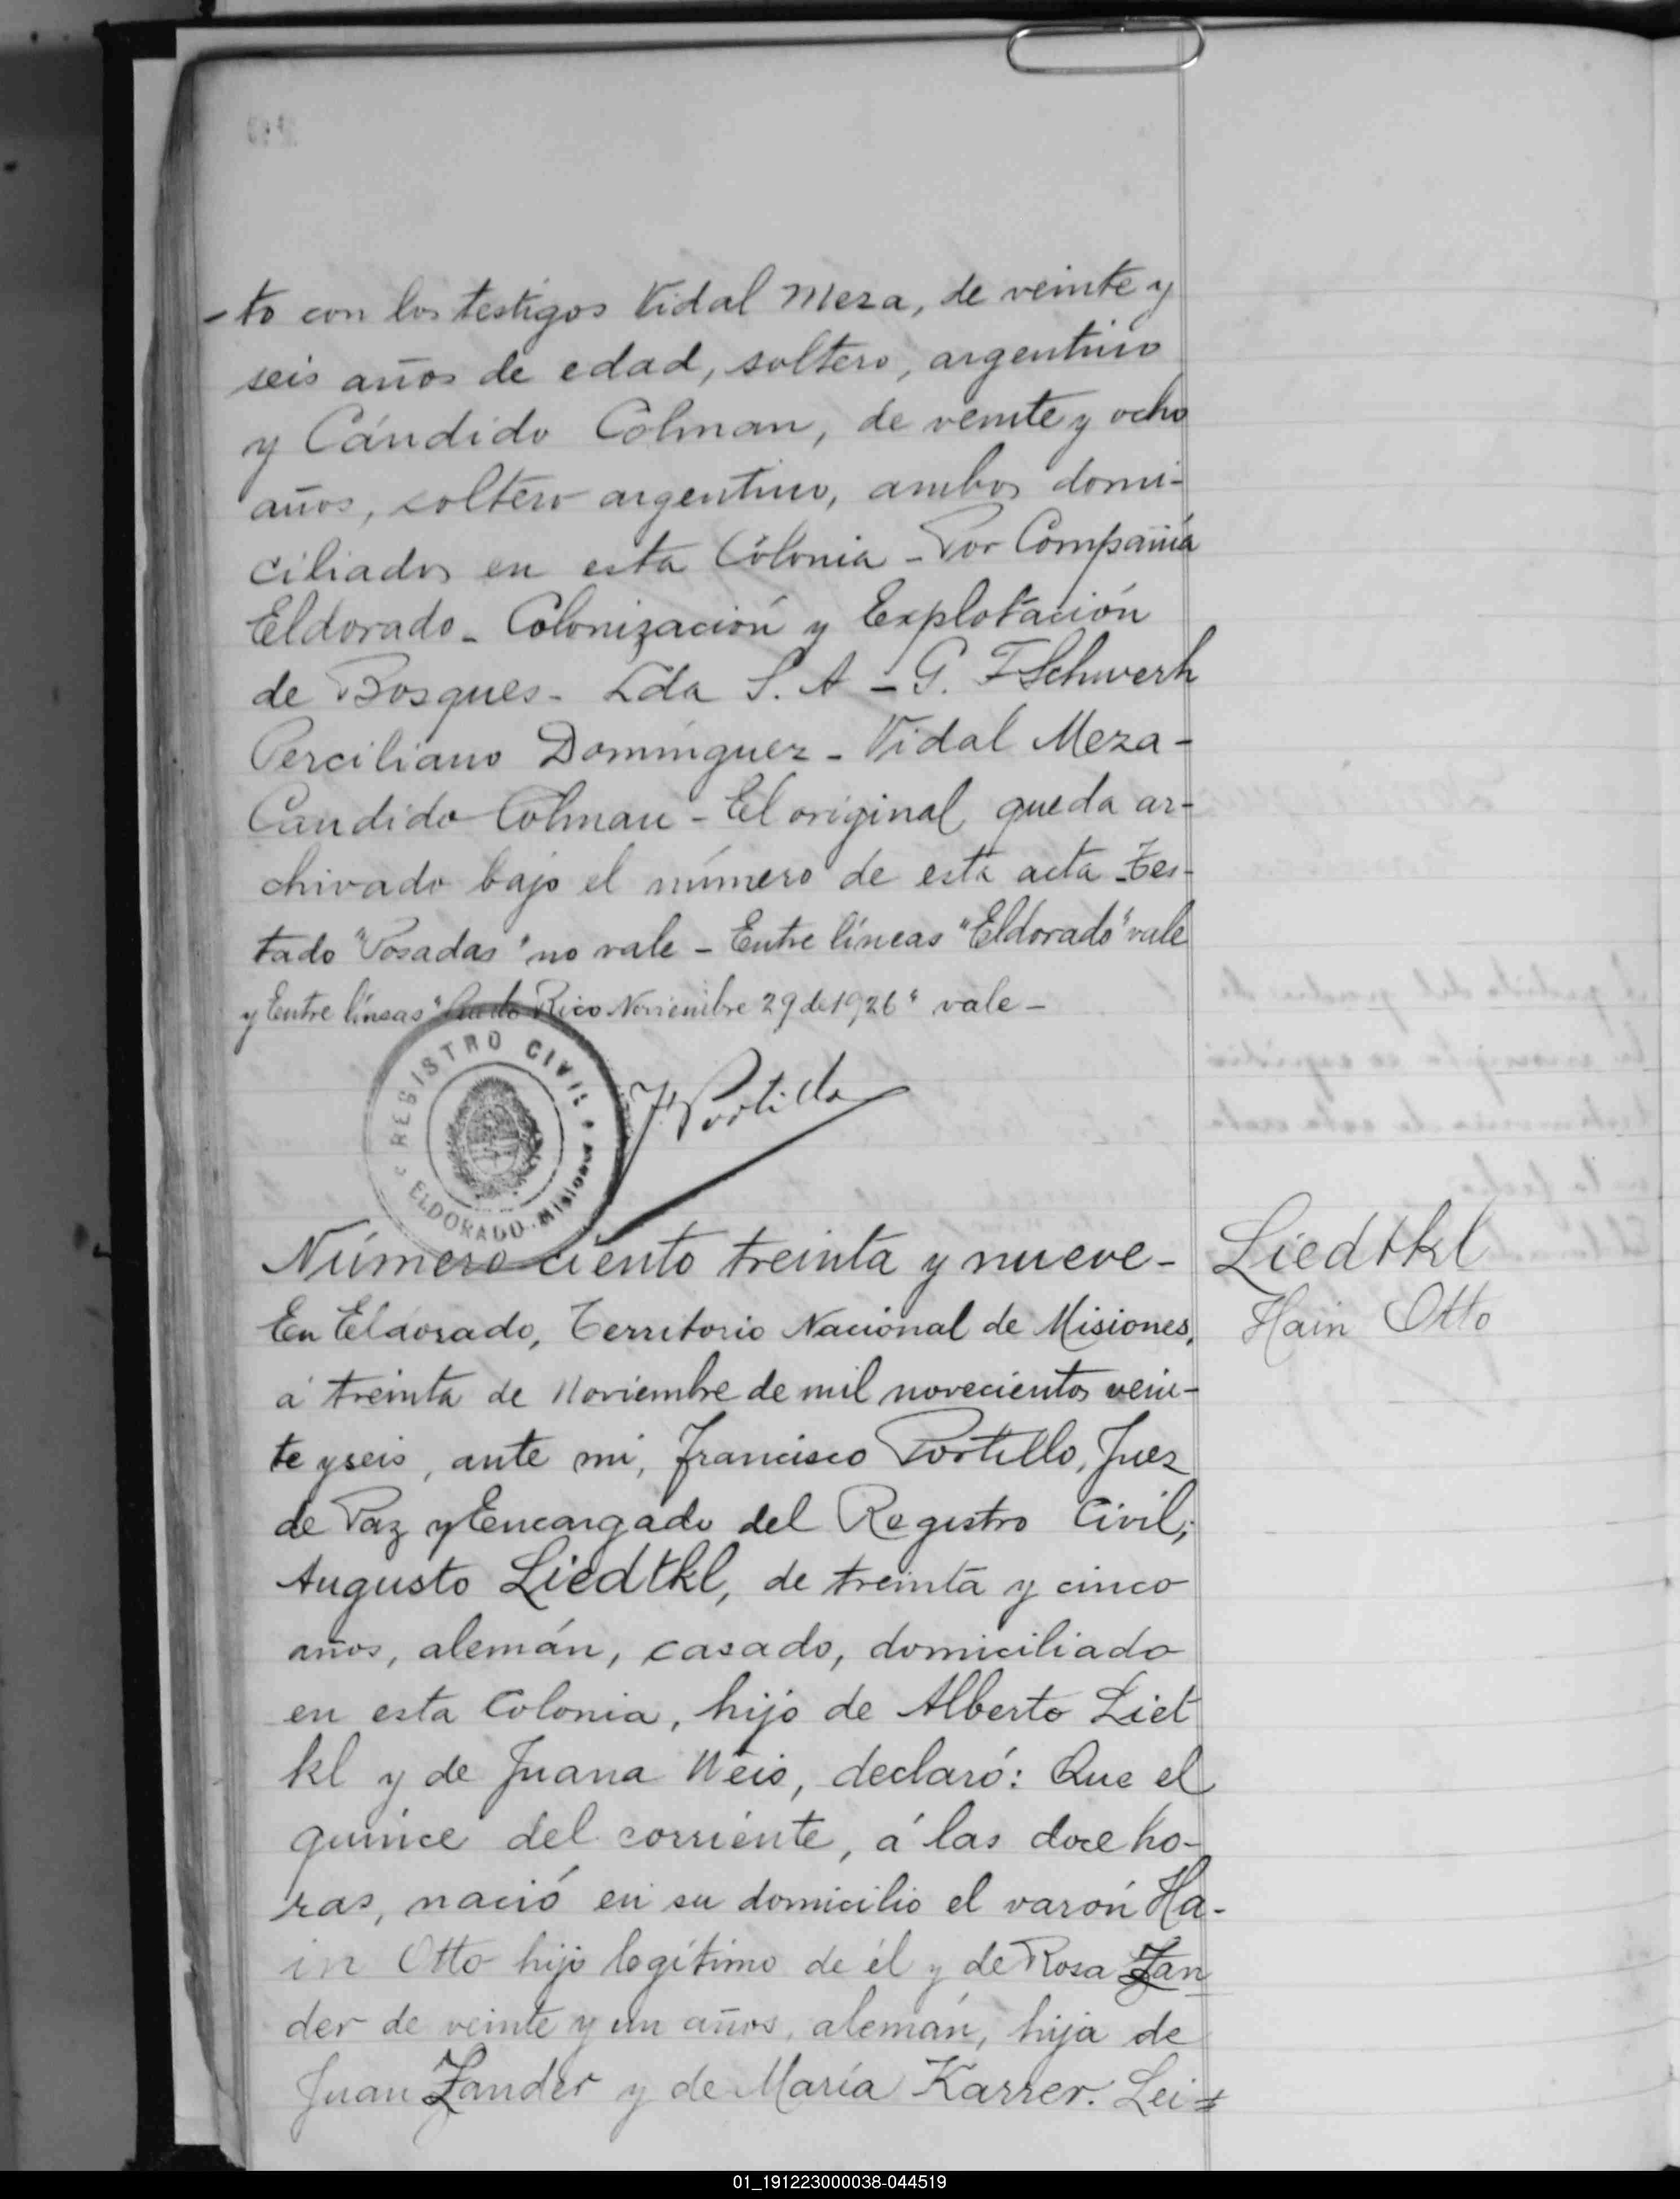 -to con los testigos Vidal Meza, de veinte y
seis años de edad, soltero, argentino
y Cándido Colman, de veinte y ocho
años, soltero argentino, ambos domi-
ciliados en esta Colonia - Por Compañía
Eldorado - Colonización y Explotación
de Bosques - Lda S. A - G. F Schwerh
Perciliano Domínguez - Vidal Meza -
Candido Colman - El original queda ar-
chivado bajo el número de esta acta - Tes-
tado "Posadas" no vale - Entre líneas "Eldorado" vale
y Entre líneas " Rico Noviembre 29 de 1926" vale -
REGISTRO CIVIL
ELDORADO - Misiones
F. Portillo
Número ciento treinta y nueve -
Liedtkl
Hain Otto
En Eldorado, Territorio Nacional de Misiones,
á treinta de Noviembre de mil novecientos vein-
te y seis, ante mi, Francisco Portillo, Juez
de Paz y Encargado del Registro Civil;
Augusto Liedtkl, de treinta y cinco
años, alemán, casado, domiciliado
en esta Colonia, hijo de Alberto Liet
kl y de Juana Weis, declaró: Que el
quince del corriente, á las doce ho-
ras, nació en su domicilio el varón Ha-
in Otto hijo legítimo de él y de Rosa Zan
der de veinte y un años, alemán, hija de
Juan Zander y de María Karrer. Lei=
01_191223000038-044519